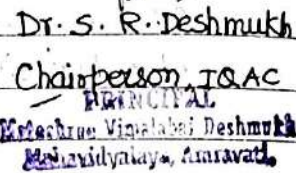 Dr. S. R. Deshmukh
Chairperson, IQAC
PRINCIPAL
Matoshree Vimalabai Deshmukh
Mahavidyalaya, Amravati.